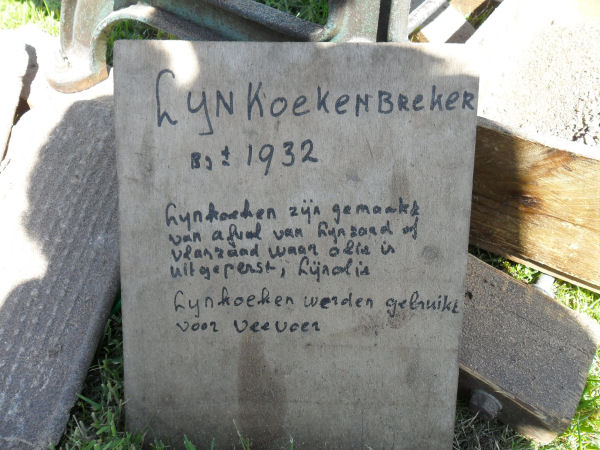 LYNKOEKENBREKER
BJ ± 1932
Lynkoeken zijn gemaakt
van afval van Lynzaad of
vlaszaad waar olie is
uitgeperst, Lijnolie
Lynkoeken werden gebruikt
voor veevoer